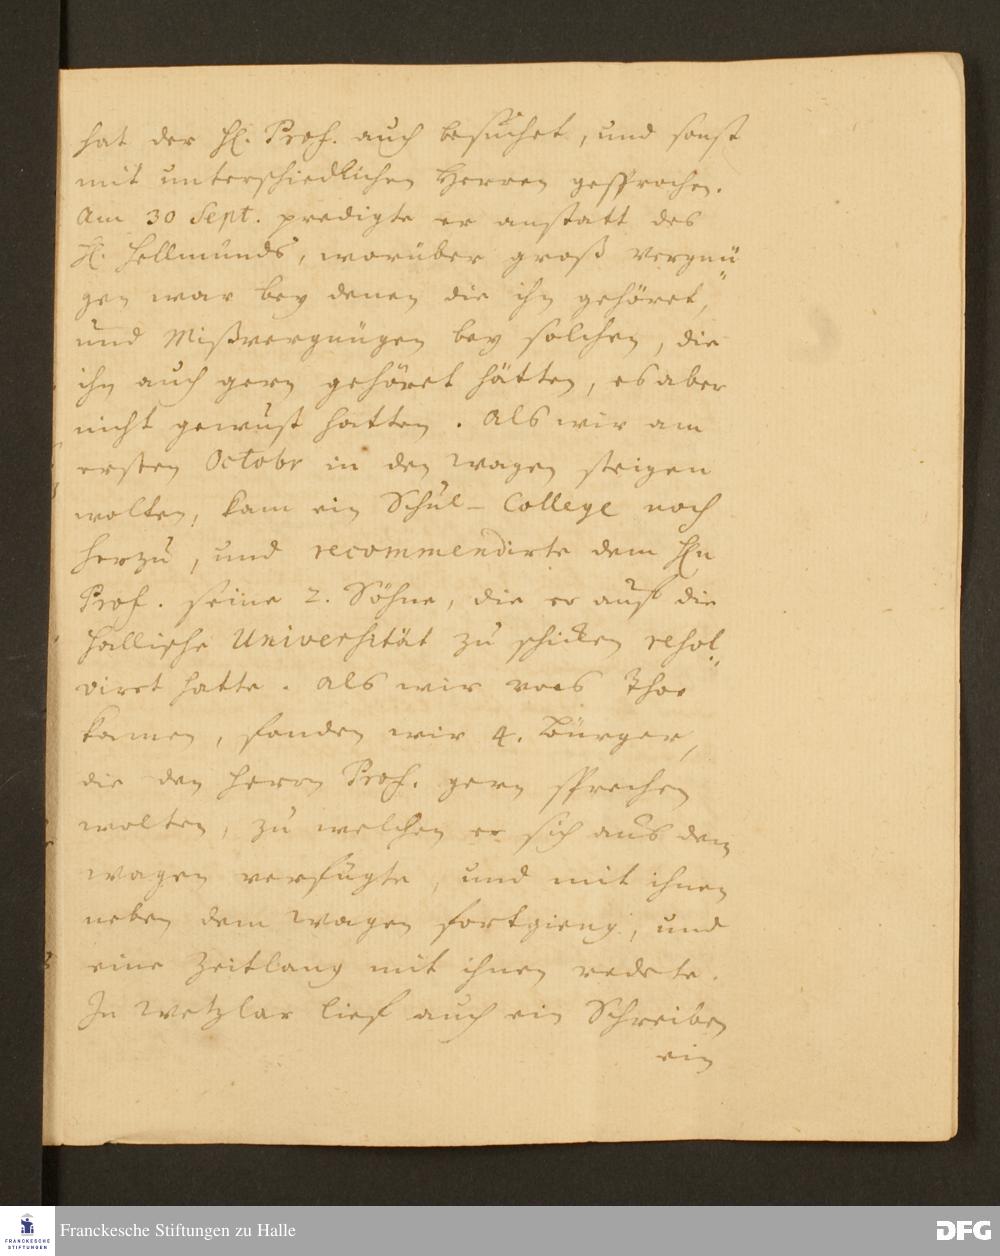 hat der H. Prof. auch besuchet, und sonst
mit unterschiedlichen Herren gesprochen.
Am 30 Sept. predigte er anstatt des
H. Hellmunds, worüber groß Vergnü„
gen war bey denen die ihn gehöret,
und Mißvergnügen bey solchen, die
ihn auch gern gehöret hätten, es aber
nicht gewust hatten. Als wir am
ersten Octobr in den wagen steigen
wolten, kam ein Schul-College noch
herzu, und recommendirte dem Hn
Prof. seine 2. Söhne, die er auf die
Hallische Universität zu schicken resol„
virt hatte. Als wir vors Thor
kamen, fanden wir 4. Bürger,
die den Herrn Prof. gern sprechen
wolten, zu welchen er sich aus dem
wagen verfügte, und mit ihnen
neben dem wagen fortgieng, und
eine Zeitlang mit ihnen redete.
In Wetzlar lief auch ein Schreiben
ein
FRANCKESCHE
STIFTUNGEN
Franckesche Stiftungen zu Halle
DFG